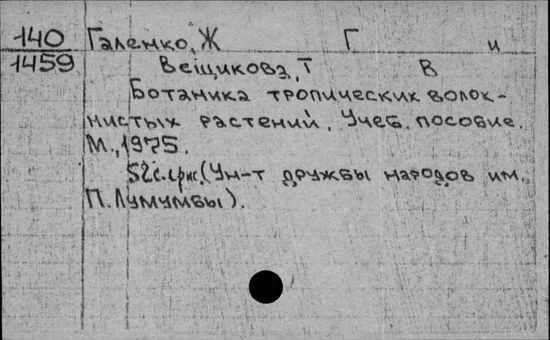 140 Галенко, Ж Г и
1459 Вещикова, Т В
Ботаника тропических волок-
нистых растений. Учеб. пособие.
М., 1975.
52с. с рис. (Ун-т дружбы народов им.
П. Лумумбы).